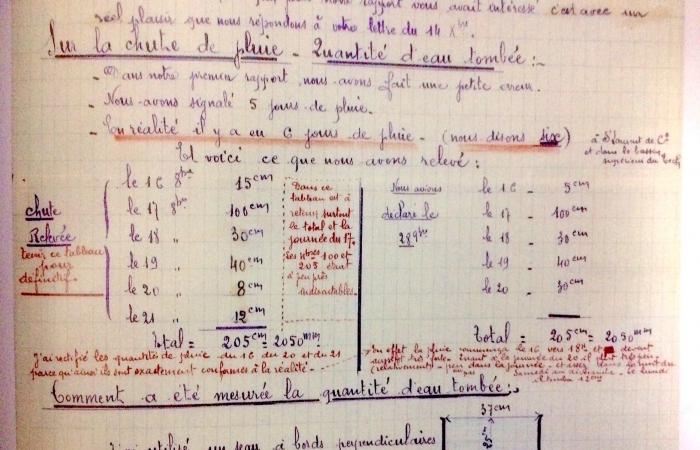 rapport vous avait intéressé c'est avec un
réel plaisir que nous répondons à votre lettre du 14 Xbre.
Sur la chute de pluie - Quantité d'eau tombée :-
- Dans notre premier rapport, nous avons fait une petite erreur.
- Nous avons signalé 5 jours de pluie.
- En réalité il y a eu 6 jours de pluie - (nous disons six)
à St Laurent de Cs
et dans le bassin
supérieur du Tech
Et voici ce que nous avons relevé :
chute
Relevée
tenir ce tableau
pour
définitif.
le 16 8bre 15cm
le 17 8bre 100cm
le 18 " 30cm
le 19 " 40cm
le 20 " 8cm
le 21 " 12cm
Total = 205cm = 2050mm
Dans ce
tableau est à
retenir surtout
le total et la
journée du 17.
Les nbres 100 et
205 étant
à peu près
indiscutables.
Nous avions
déclaré le
28 9bre
le 16 - 5cm
le 17 - 100cm
le 18 - 30cm
le 19 - 40cm
le 20 - 30cm
Total = 205cm = 2050mm
J'ai rectifié les quantités de pluie du 16 du 20 et du 21
parce qu'ainsi ils sont exactement conformes à la réalité -
En effet la pluie commença le 16 vers 18h et devint
aussitôt très forte. Quant à la journée du 20 il plut très peu
(relativement) - peu dans la journée - et assez dans la nuit du
Comment a été mesurée la quantité d'eau tombée :-
37cm
utilisé un seau à bords perpendiculaires